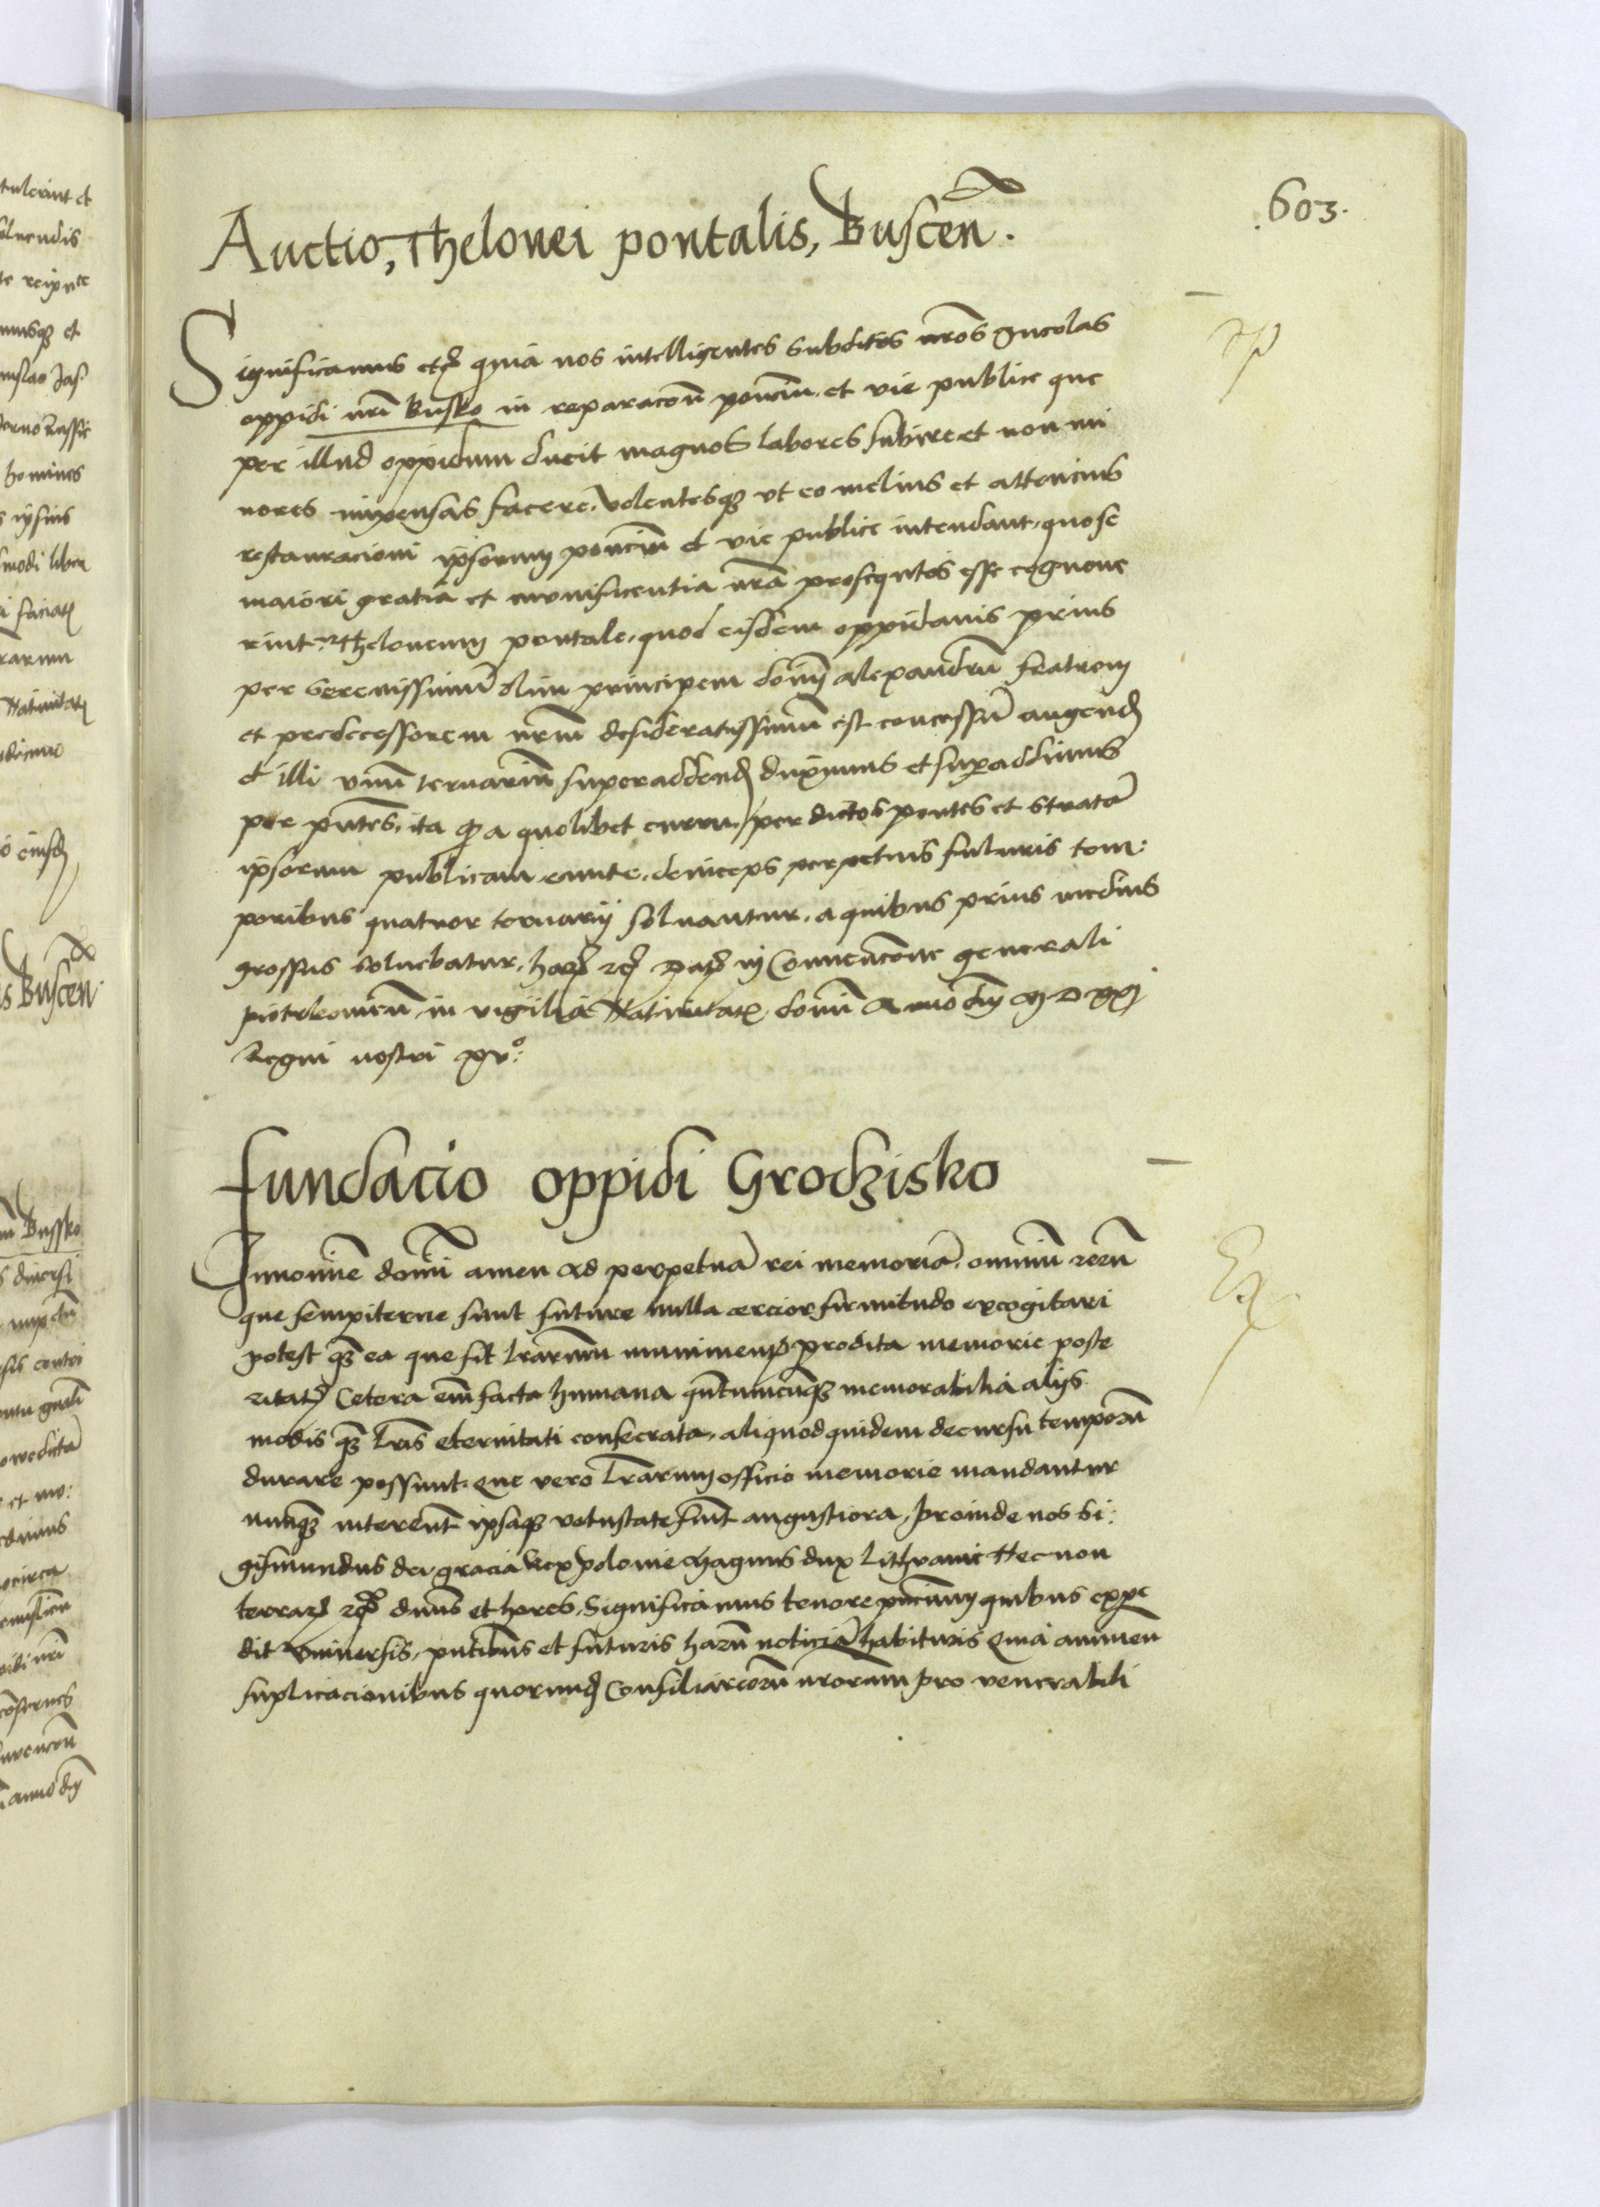 603.
Auctio, Thelonei pontalis, Buscen̄.
Significamus etc̄ quia nos intelligentes subditos nr̄os Incolas
oppidi nr̄i Busko in reparacōn̄ poncīū et vie publice que
per illud oppidum ducit magnos labores subire et non mi
nores impensas facere, volentesqȝ vt eo melius et attencius
restauracioni ipsorum poncīū et vie publice intendant, quo se
maiori gratia et munificentia nr̄a prosequtos esse cognoue
rint, Theloneum pontale, quod eisdem oppidanis prius
per serenissimū olim principem dominū alexandrū fratrem
et predecessorem nr̄m desideratissimum est concessū augendū
et illi vnū ternariū superaddendū duximus et supaddimus
per pn̄tes, ita qꝫ a quolibet curru, per dictos pontes et stratā
ipsorum publicam eunte, deinceps perpetuis futuris tem:
poribus quatuor ternarij soluantur, a quibus prius medius
grossus soluebatur, harꝫ etc̄ Datꝫ in Conuencōne generali
piotrkouien̄, in vigilia Natiuitatꝭ domī Anno dnī M D XXI
Regni nostri xvº:
Fundacio oppidi Grodzisko
In nomīe domī amen Ad perpetuā rei memoriā, omniū rerū
que sempiterne sunt future nulla cercior firmitudo excogitari
potest qȝ ea que sit lr̄arum munimentꝭ prodita memorie poste
ritatꝭ Cetera em̄ facta humana qn̄tumcūqȝ memorabilia alijs
modis qȝ lr̄is eternitati consecrata, aliquod quidem decursu temporū
durare possunt, que vero lr̄arum officio memorie mandantur
nunqȝ intereunt ipsaqȝ vetustate fiūt angustiora, Proinde nos Si:
gismundus dei gracia Rex Polonie Magnus dux Lithvanie Necnon
terrarꝫ etc̄ dnūs et heres, Significamus tenore pn̄cium quibus expe
dit vniuersis, pn̄tibus et futuris harū noticiā habituris Quia annuen̄
suplicacionibus quorundā Consiliariorū nr̄orum pro venerabili